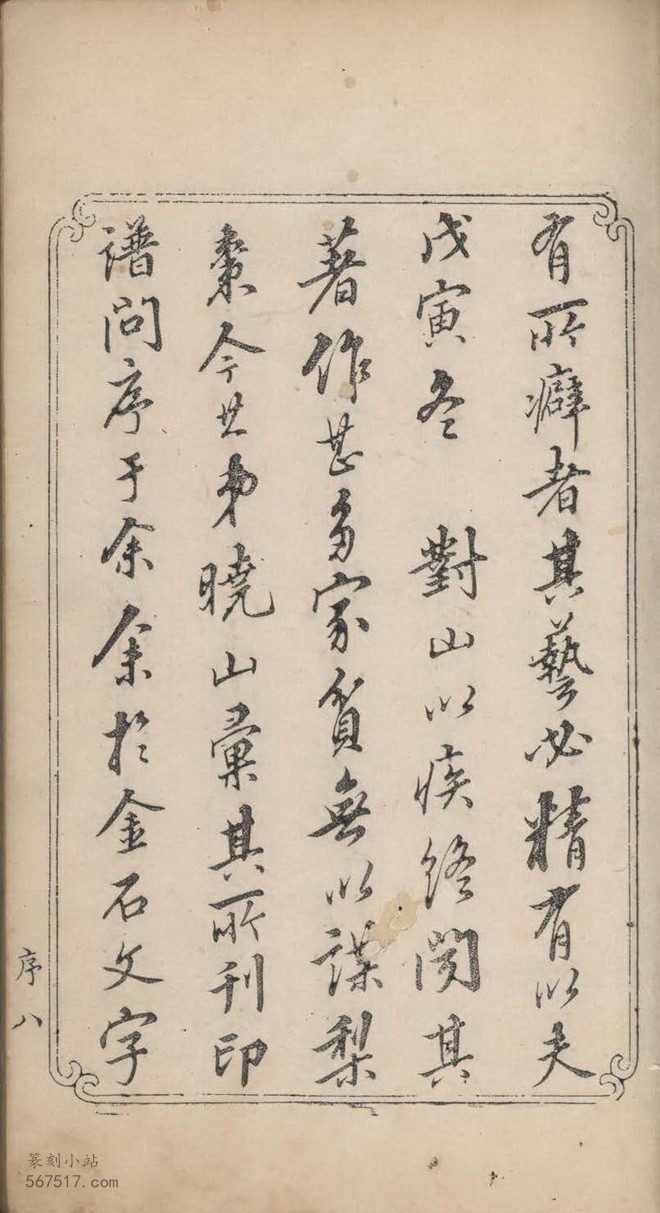 有所癖者其藝必精有以夫
戊寅冬 對山以疾終閱其
著作甚多家貧無以謀梨
棗今其弟曉山彙其所刊印
譜問序于余余於金石文字
序八
篆刻小站
567517.com